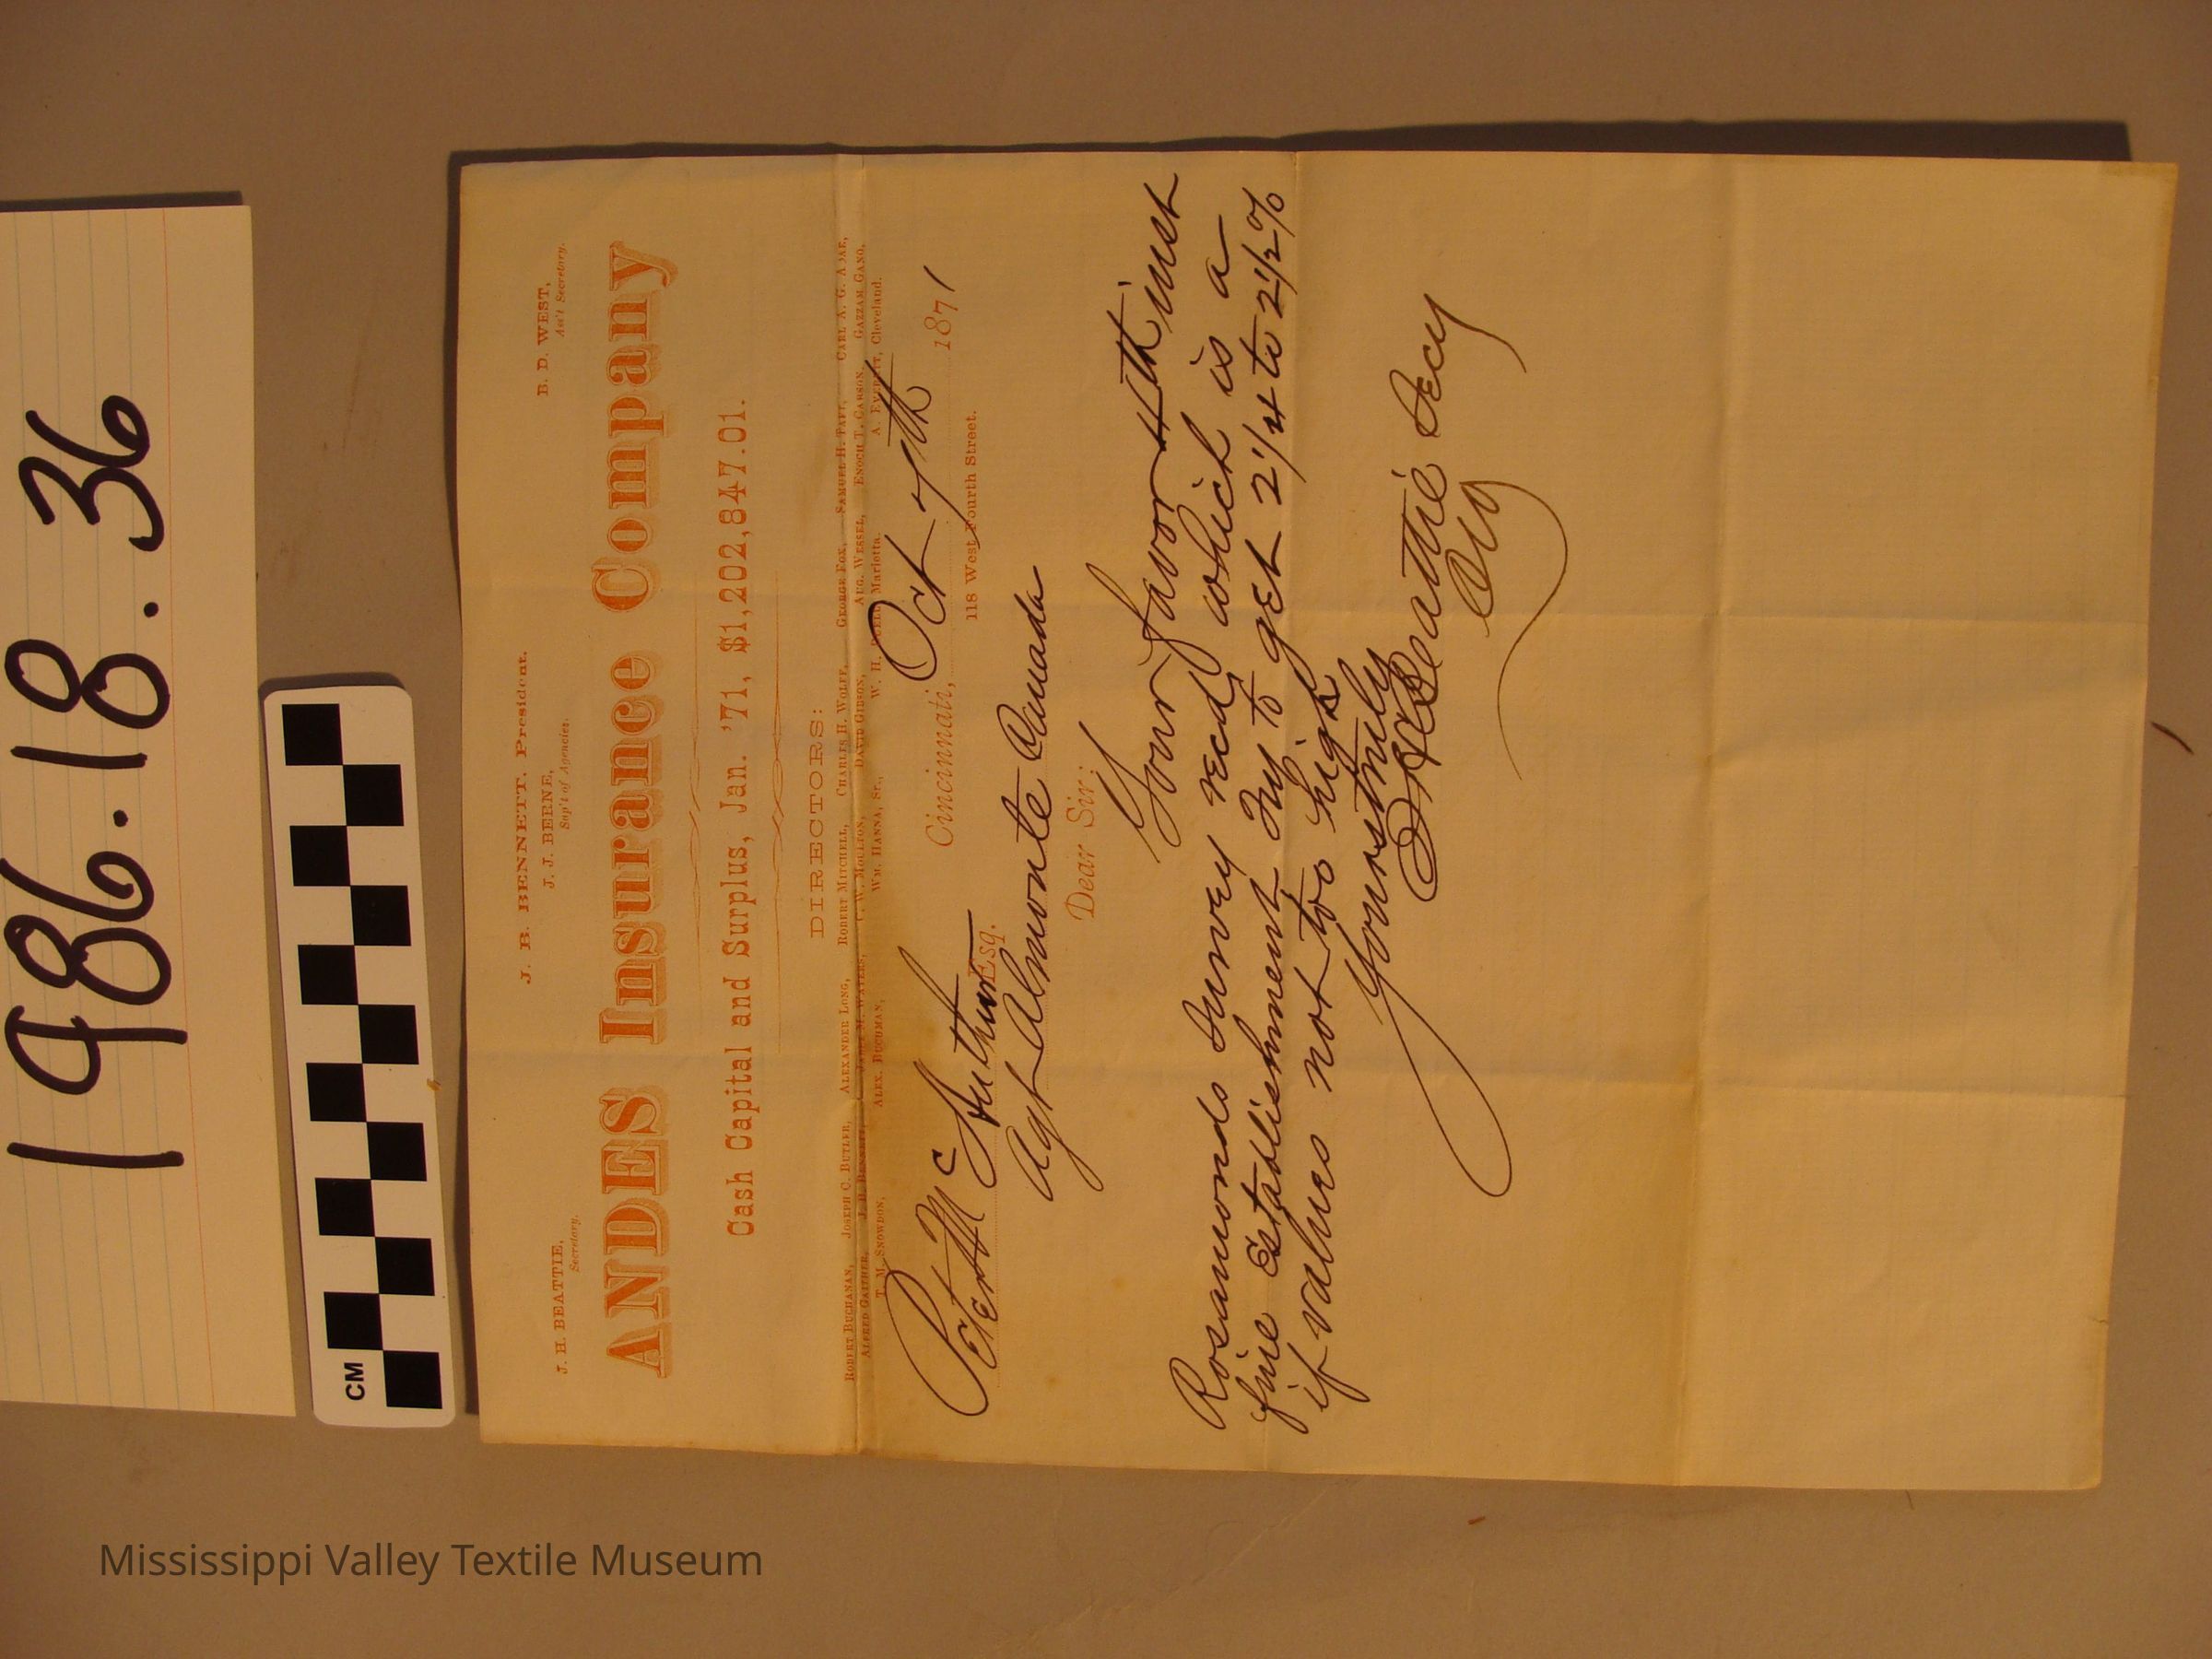 1986.18.36
CM
J. B. BENNETT, President.
J. H. BEATTIE,
Secretary.
J. J. BERNE,
Sup't of Agencies.
B. D. WEST,
Ass't Secretary.
ANDES Insurance Company
Cash Capital and Surplus, Jan. '71, $1,202,847.01.
DIRECTORS:
ROBERT BUCHANAN, JOSEPH C. BUTLER, ALEXANDER LONG, ROBERT MITCHELL, CHARLES H. WOLFF, GEORGE FOX, SAMUEL H. TAFT, CARL A. G. ADAE,
ALFRED GAITHER, J. B. BENNETT, JAMES M. WATERS, C. W. MOULTON, DAVID GIBSON, AUG. WESSEL, ENOCH T. CARSON, GAZZAM GANO,
T. M. SNOWDON, ALEX. BUCHMAN, WM. HANNA, Sr., W. H. Marietta. A. EVERETT, Cleveland.
Cincinnati, Oct 7th 1871
118 West Fourth Street.
Peter McArthur Esq.
Agt Almonte Canada
Dear Sir:
Your favor 4th inst
Rosamonds Survey recd which is a
fine Establishment Try to get 2 1/4 to 2 1/2 %
if values not to high
Yours truly
J H Beattie Secy
Mississippi Valley Textile Museum